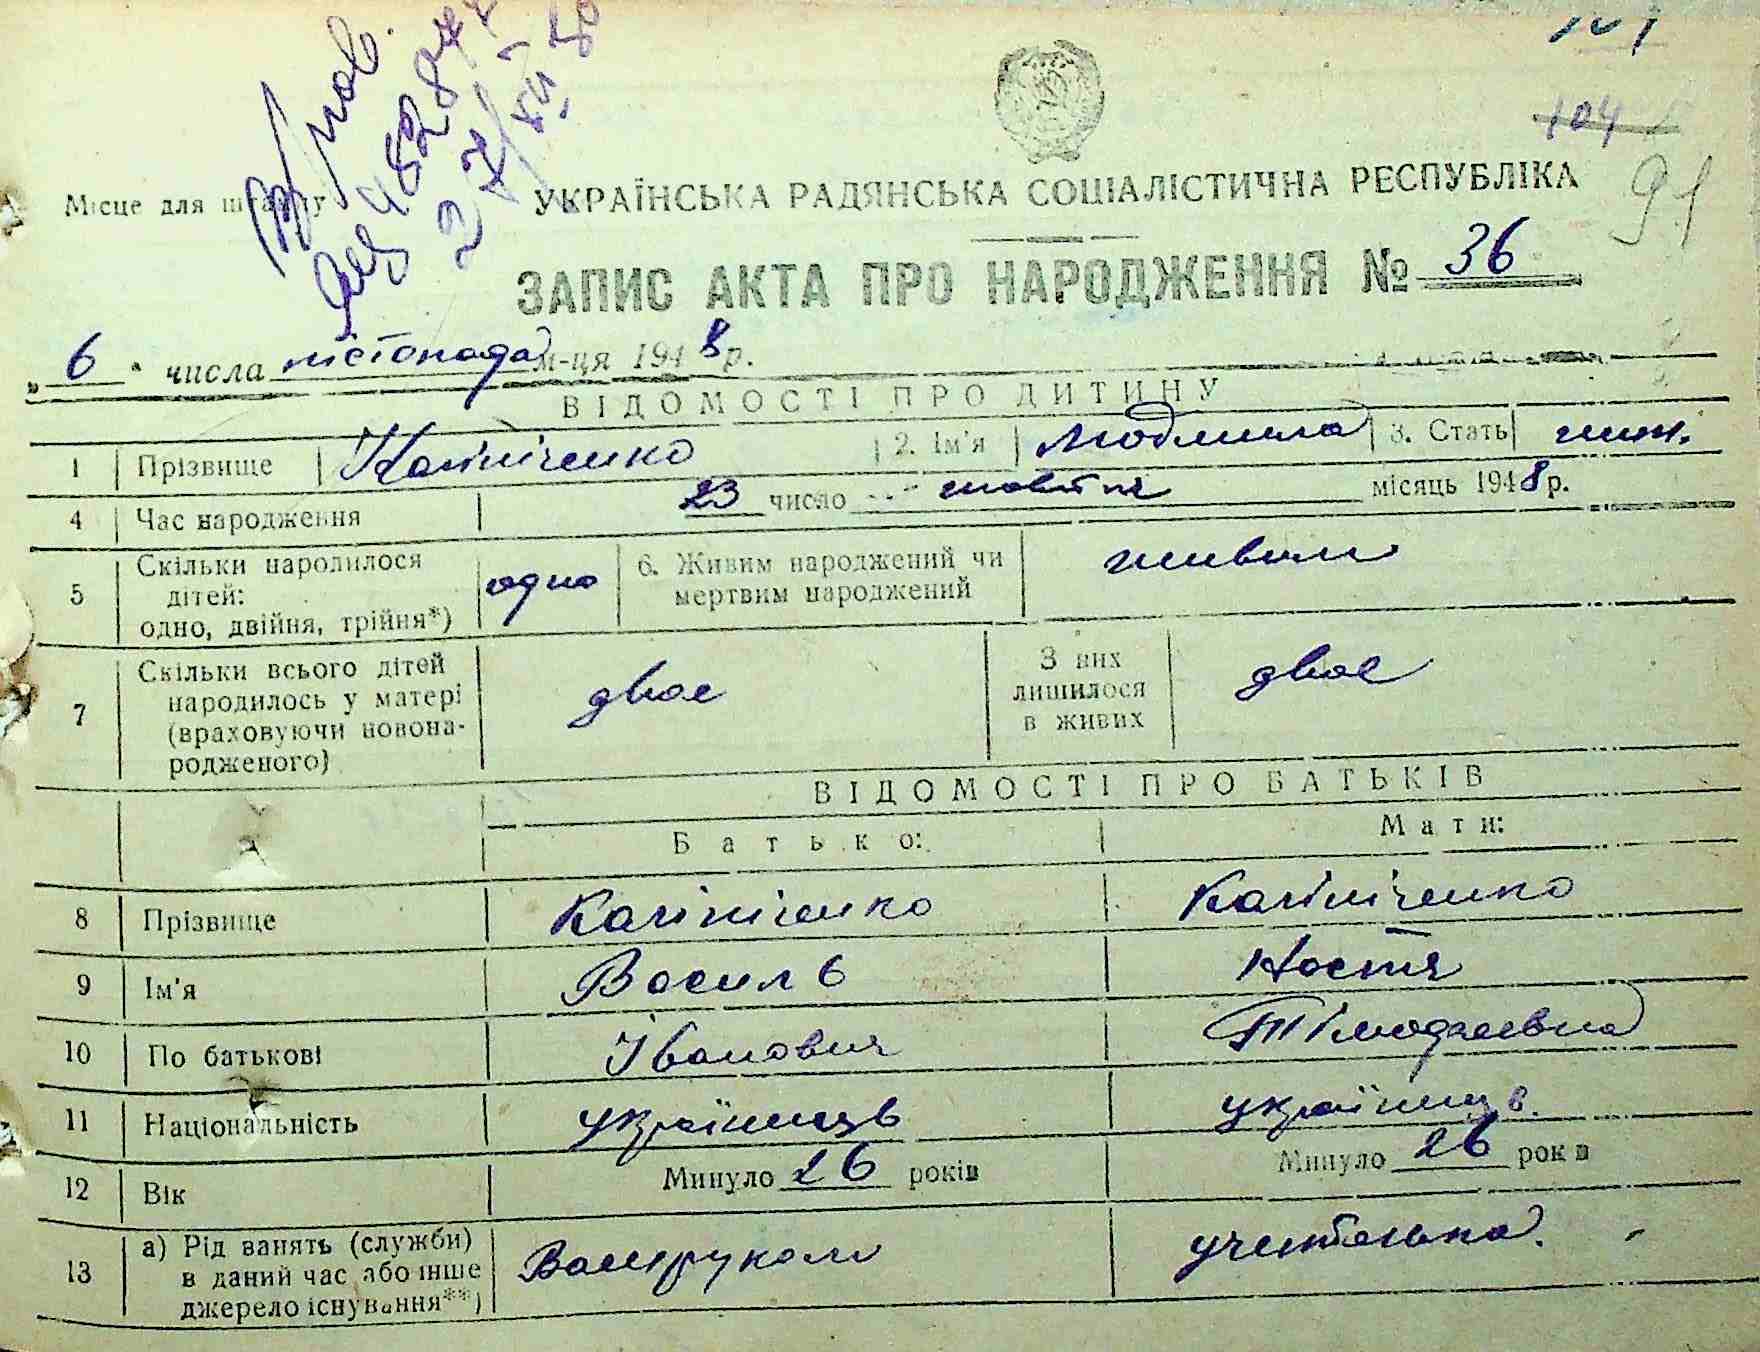 104
91
Місце для штампу
УКРАЇНСЬКА РАДЯНСЬКА СОЦІАЛІСТИЧНА РЕСПУБЛІКА
ЗАПИС АКТА ПРО НАРОДЖЕННЯ № 36
„ 6 " числа лістопада м-ця 1948 р.
ВІДОМОСТІ ПРО ДИТИНУ
1 Прізвище Калініченко 2. Ім'я Людмила 3. Стать жін.
4 Час народження 23 число жовтня місяць 1948 р.
5 Скільки народилося дітей: одно, двійня, трійня*) одно 6. Живим народжений чи мертвим народжений живим
7 Скільки всього дітей народилось у матері (враховуючи новонародженого) двое З них лишилося в живих двое
ВІДОМОСТІ ПРО БАТЬКІВ
Батько: Мати:
8 Прізвище Калініченко Калініченко
9 Ім'я Василь Настя
10 По батькові Іванович Тімофеевна
11 Національність українець українць.
12 Вік Минуло 26 років Минуло 26 років
13 а) Рід занять (служби) в даний час або інше джерело існування**) учителька.